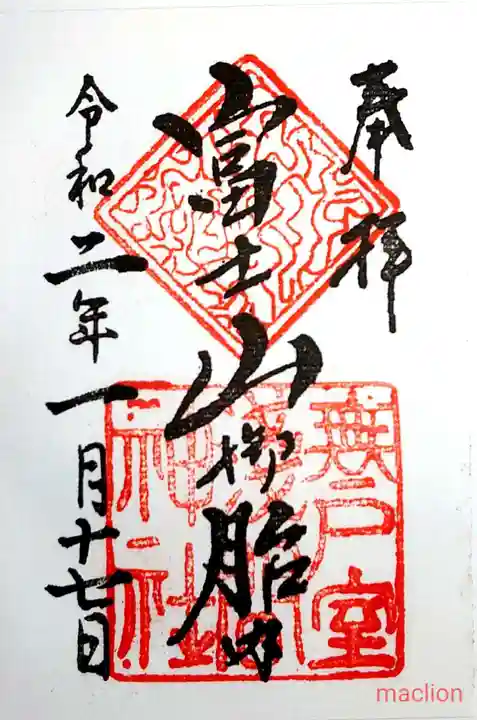 奉拝
富士山御胎内
令和二年一月十七日
無戸室
浅間
神社
maclion